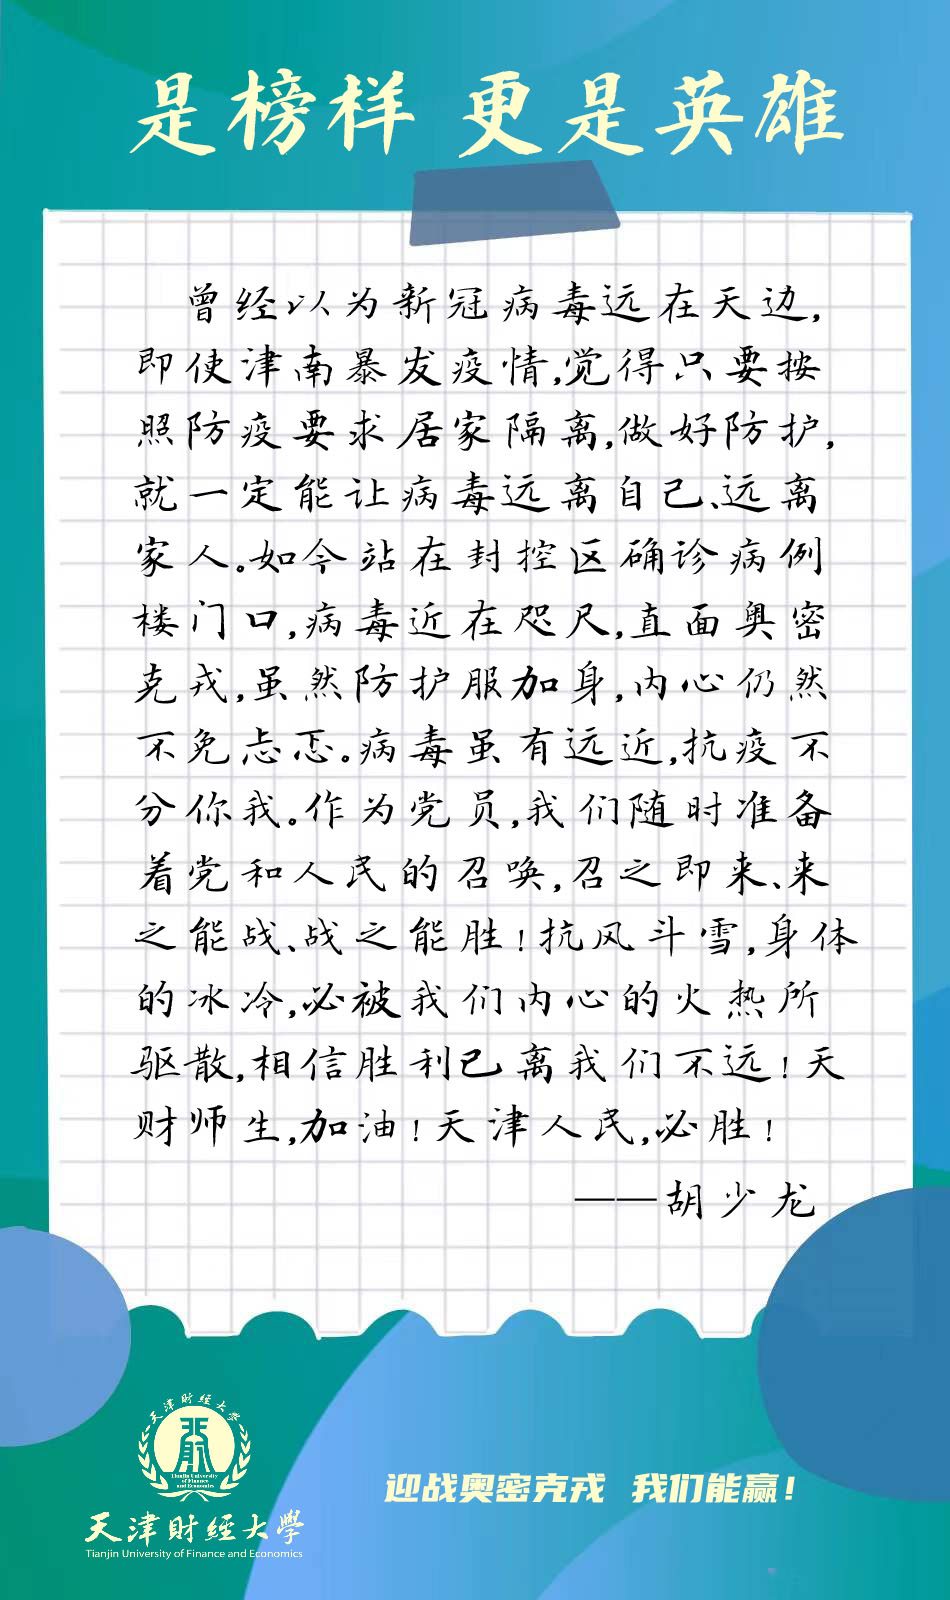 是榜样 更是英雄
曾经以为新冠病毒远在天边,
即使津南暴发疫情,觉得只要按
照防疫要求居家隔离,做好防护,
就一定能让病毒远离自己、远离
家人。如今站在封控区确诊病例
楼门口,病毒近在咫尺,直面奥密
克戎,虽然防护服加身,内心仍然
不免忐忑。病毒虽有远近,抗疫不
分你我。作为党员,我们随时准备
着党和人民的召唤,召之即来、来
之能战、战之能胜!抗风斗雪,身体
的冰冷,必被我们内心的火热所
驱散,相信胜利已离我们不远!天
财师生,加油!天津人民,必胜!
——胡少龙
天津财经大学
Tianjin University
of Finance
and Economics
迎战奥密克戎 我们能赢!
天津财经大学
Tianjin University of Finance and Economics